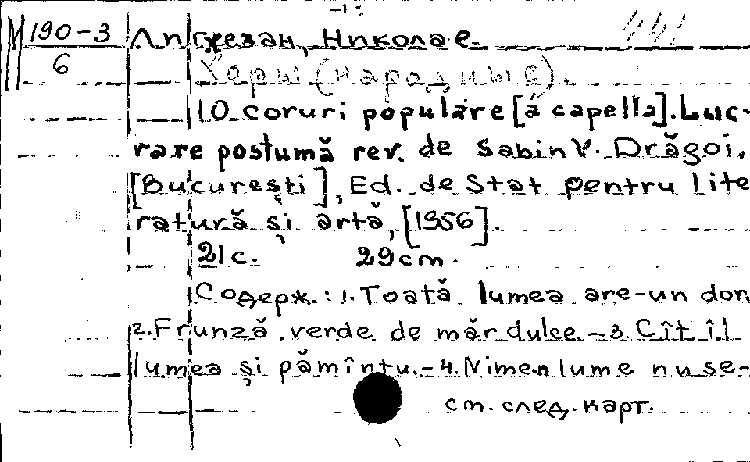 М 190-3
6
Лигжезан, Николае.
Хоры (народные).
10 coruri populare [a capella]. Luc-
rare postumă rev. de Sabin V. Drăgoi.
[București], Ed. de Stat pentru lite
ratură și artă, [1956].
21 с. 29 cm.
Содерж.: 1. Toată lumea are-un dor
2. Frunză verde de măr dulce - 3. Cît îi
lumea și pămîntu. - 4. Nimen lume nu se-
см. след. карт.